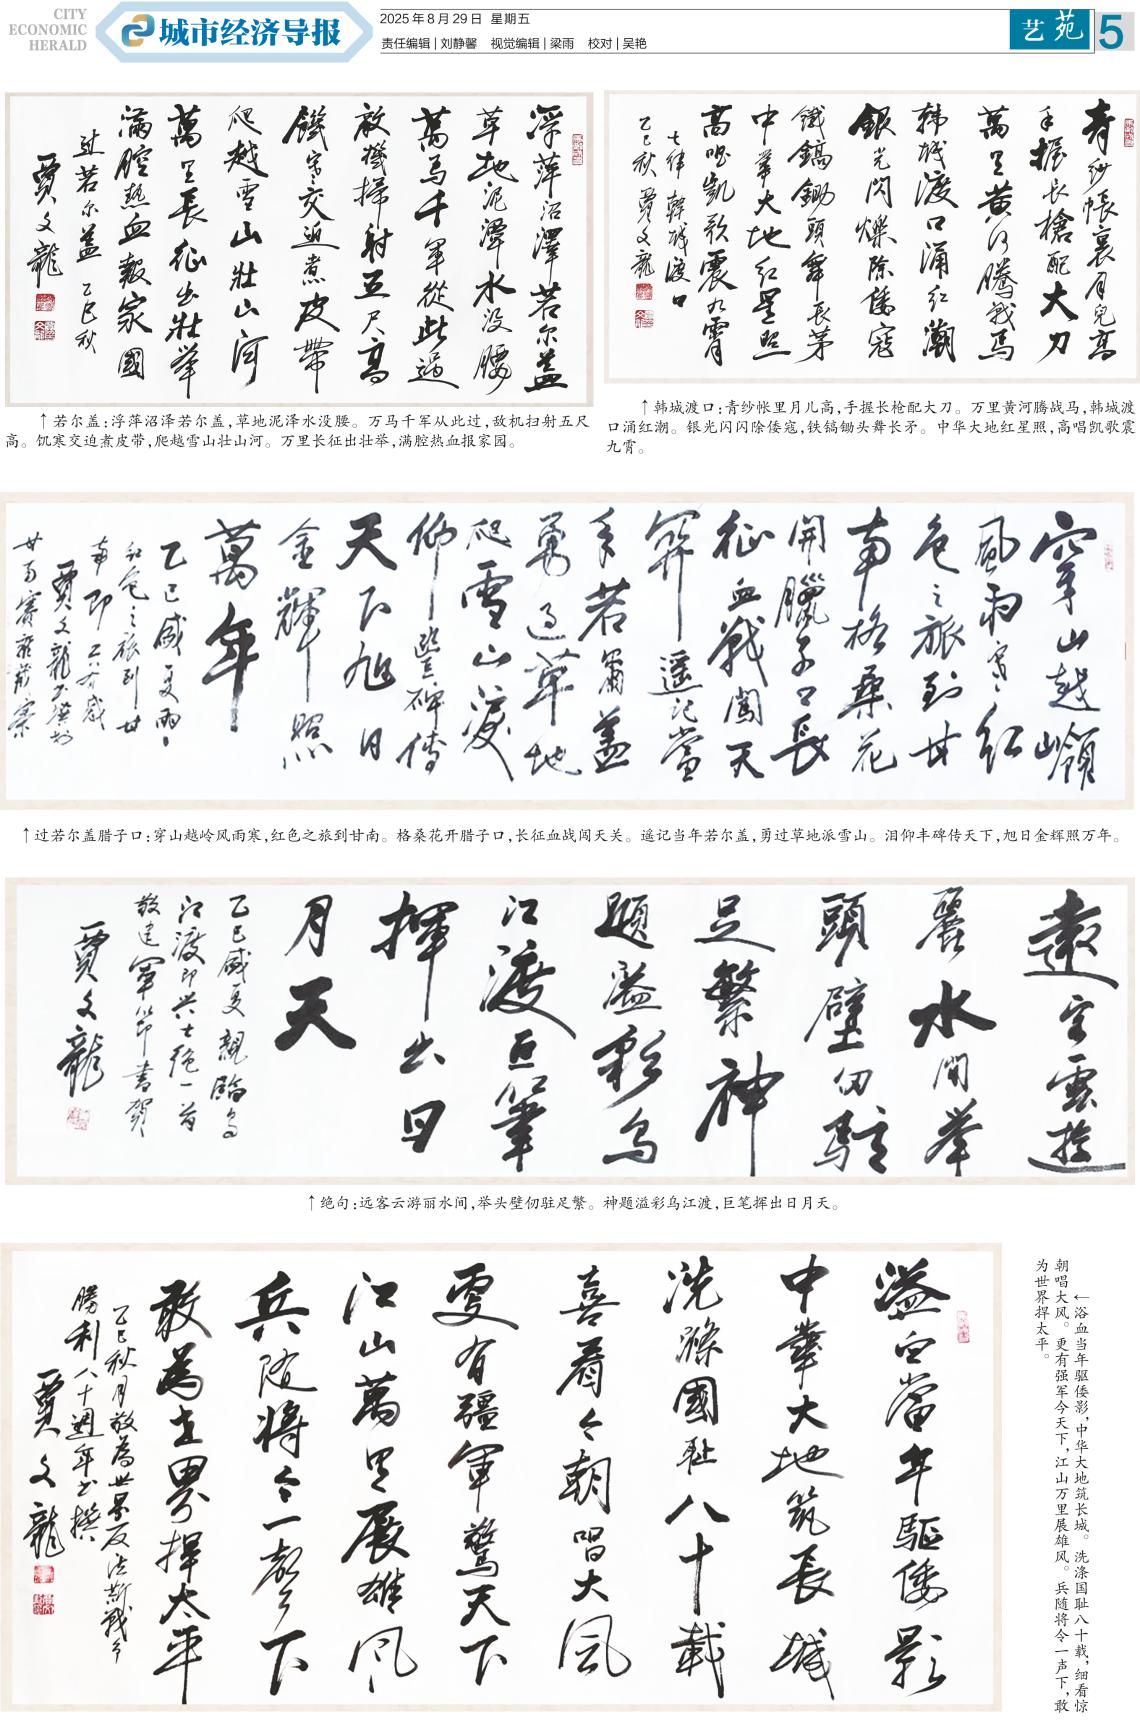 CITY
ECONOMIC
HERALD
城市经济导报
2025年8月29日 星期五
责任编辑|刘静馨 视觉编辑|梁雨 校对|吴艳
艺苑
5
浮萍沼澤若尔盖
草地泥潭水没腰
萬马千軍從此過
敌機掃射五尺高
饑寒交迫煮皮帶
爬越雪山壮山河
萬里長征出壮举
滿腔熱血報家國
过若尔盖 乙巳秋
賈文龍
↑若尔盖:浮萍沼泽若尔盖,草地泥泽水没腰。万马千军从此过,敌机扫射五尺
高。饥寒交迫煮皮带,爬越雪山壮山河。万里长征出壮举,满腔热血报家园。
青纱帳裏月兒高
手握长槍配大刀
萬里黄河騰战马
韩城渡口涌红潮
銀光閃爍除倭寇
鐵鎬鋤頭舞長茅
中華大地红星照
高唱凯歌震九霄
七律 韓城渡口
乙巳秋 賈文龍
↑韩城渡口:青纱帐里月儿高,手握长枪配大刀。万里黄河腾战马,韩城渡
口涌红潮。银光闪闪除倭寇,铁镐锄头舞长矛。中华大地红星照,高唱凯歌震
九霄。
穿山越嶺
風雨寒红
色之旅到甘
南格桑花
開臘子口長
征血戰闖天
關遥记當
年若爾盖
勇过草地
爬雪山淚
仰豐碑傳
天下旭日
金輝照
萬年
乙巳盛夏雨
红色之旅到甘
南即兴有感
賈文龍书撰於
↑过若尔盖腊子口:穿山越岭风雨寒,红色之旅到甘南。格桑花开腊子口,长征血战闯天关。遥记当年若尔盖,勇过草地派雪山。泪仰丰碑传天下,旭日金辉照万年。
遠客雲游
麗水間举
頭壁仞駐
足繁神
題溢彩乌
江渡巨筆
揮出日
月天
乙巳盛夏親臨乌
江渡即兴七绝一首
敬建軍节書贺
賈文龍
↑绝句:远客云游丽水间,举头壁仞驻足繁。神题溢彩乌江渡,巨笔挥出日月天。
浴血當年驅倭影
中華大地筑長城
洗滌國耻八十載
喜看今朝唱大風
更有疆軍驚天下
江山萬里展雄风
兵随将令一声下
敢為世界捍太平
乙巳秋月敬為世界反法斯战争
勝利八十週年书撰
賈文龍
←浴血当年驱倭影,中华大地筑长城。洗涤国耻八十载,细看惊
朝唱大风。更有强军今天下,江山万里展雄风。兵随将令一声下,敢
为世界捍太平。